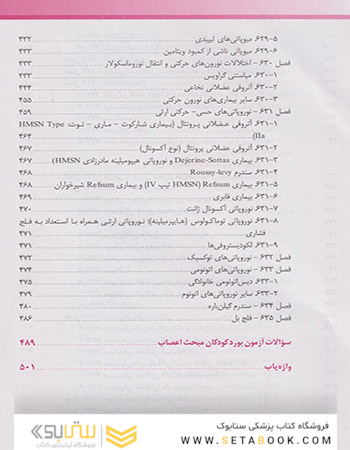 ۵-۶۲۹. میوپاتی‌های لیپیدی ۴۳۲
۶-۶۲۹. میوپاتی ناشی از کمبود ویتامین ۴۳۳
فصل ۶۳۰ - اختلالات نورون‌های حرکتی و انتقال نوروماسکولار ۴۳۳
۱-۶۳۰. میاستنی گراویس ۴۳۳
۲-۶۳۰. آتروفی عضلانی نخاعی ۴۴۴
۳-۶۳۰. سایر بیماری‌های نورون حرکتی ۴۵۵
فصل ۶۳۱ - نوروپاتی‌های حسی- حرکتی ارثی ۴۵۹
۱-۶۳۱. آتروفی عضلانی پرونئال (بیماری شارکوت - ماری - توث؛ HMSN Type
IIa) ۴۶۴
۲-۶۳۱. آتروفی عضلانی پرونئال (نوع آکسونال) ۴۶۷
۳-۶۳۱. بیماری Dejerine-Sottas و نوروپاتی هیپومیلینه مادرزادی (HMSN) ۴۶۷
۴-۶۳۱. سندرم Roussy-levy ۴۶۸
۵-۶۳۱. بیماری Refsum (HMSN تیپ IV) و بیماری Refsum شیرخواران ۴۶۸
۶-۶۳۱. بیماری فابری ۴۶۹
۷-۶۳۱. نوروپاتی آکسونال ژانت ۴۷۰
۸-۶۳۱. نوروپاتی توماکولوس (هایپرمیلینه)؛ نوروپاتی ارثی همراه با استعداد به فلج
فشاری ۴۷۱
۹-۶۳۱. لکودیستروفی‌ها ۴۷۱
فصل ۶۳۲ - نوروپاتی‌های توکسیک ۴۷۲
فصل ۶۳۳ - نوروپاتی‌های اتونومی ۴۷۴
۱-۶۳۳. دیس‌اتونومی خانوادگی ۴۷۵
۲-۶۳۳. سایر نوروپاتی‌های اتونوم ۴۷۹
فصل ۶۳۴ - سندرم گیلن‌باره ۴۸۰
فصل ۶۳۵ - فلج بل ۴۸۶
سؤالات آزمون بورد کودکان مبحث اعصاب ۴۸۹
واژه‌یاب ۵۰۱
فروشگاه کتاب پزشکی ستابوک
WWW.SETABOOK.COM
ستابوک
فروشگاه اینترنتی کتاب